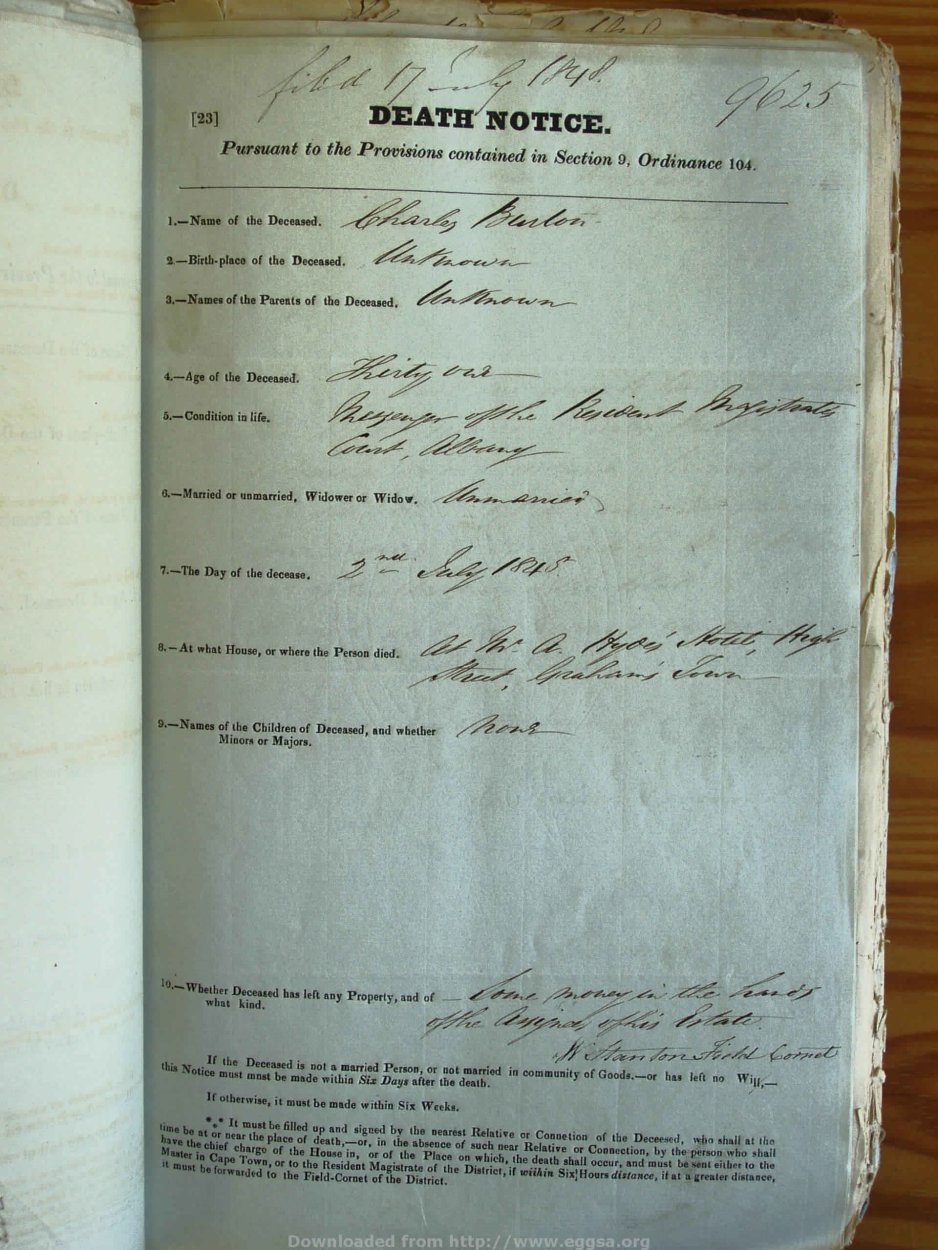 filed 17 July 1848.
9625
[23]
DEATH NOTICE.
Pursuant to the Provisions contained in Section 9, Ordinance 104.
1.—Name of the Deceased. Charles Burton
2.—Birth-place of the Deceased. Unknown
3.—Names of the Parents of the Deceased. Unknown
4.—Age of the Deceased. Thirty one
5.—Condition in life. Messenger of the Resident Magistrates
Court, Albany
6.—Married or unmarried, Widower or Widow. Unmarried
7.—The Day of the decease. 2nd July 1848
8.—At what House, or where the Person died. At Mr A. Hyde's Hotel, High
Street, Graham's Town
9.—Names of the Children of Deceased, and whether None
Minors or Majors.
10.—Whether Deceased has left any Property, and of — Some money in the hands
what kind.
of the Assignee of his Estate.
W Stanton Field Cornet
If the Deceased is not a married Person, or not married in community of Goods.—or has left no Will,—
this Notice must mnst be made within Six Days after the death.
If otherwise, it must be made within Six Weeks.
*** It must be filled up and signed by the nearest Relative or Connetion of the Deceesed, who shall at the
time be at or near the place of death,—or, in the absence of such near Relative or Connection, by the person who shall
have the chief charge of the House in, or of the Place on which, the death shall occur, and must be sent either to the
Master in Cape Town, or to the Resident Magistrate of the District, if wiihin Six Hours distance, if at a greater distance,
it must be forwarded to the Field-Cornet of the District.
Downloaded from http://www.eggsa.org